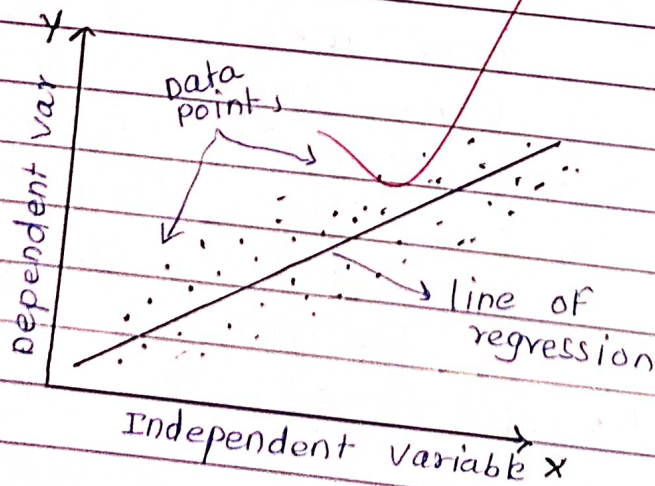 Y
Dependent var
Data
points
line of
regression
Independent variable X